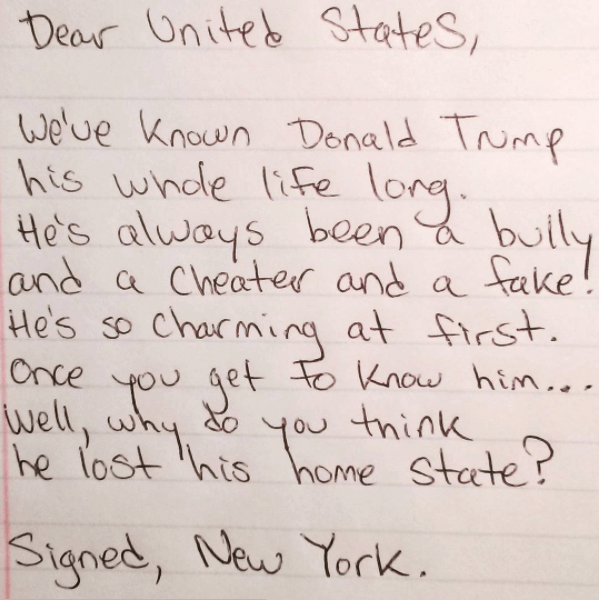 Dear United States,
We've known Donald Trump
his whole life long.
He's always been a bully
and a cheater and a fake!
He's so charming at first.
Once you get to know him...
Well, why do you think
he lost his home state?
Signed, New York.